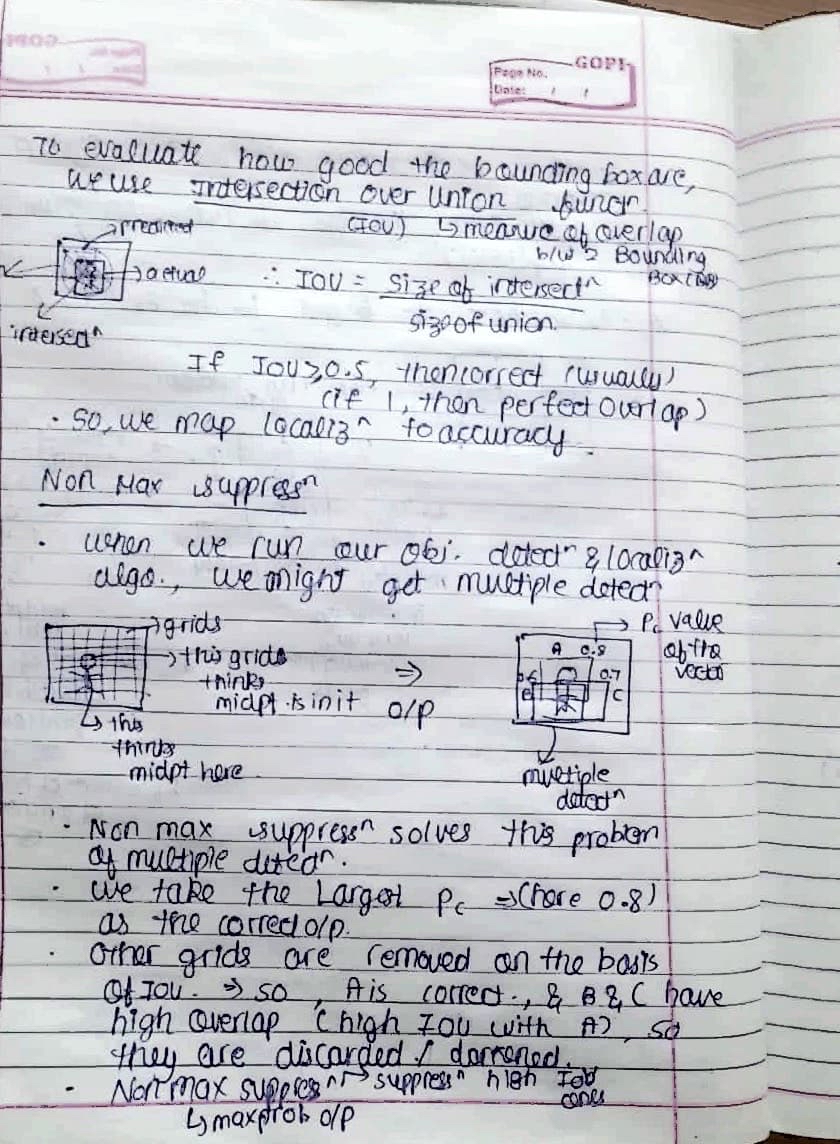 GOPI
Page No.
Date: / /
To evaluate how good the bounding box are,
we use Intersection over Union funcⁿ
(IOU) ↳ measure of overlap
b/w 2 Bounding
Box (BB)
→ predicted
→ actual
intersectⁿ
∴ IOU = Size of intersectⁿ
size of union.
If IOU ≥ 0.5, then correct (usually)
(if 1, then perfect overlap)
· So, we map localizⁿ to accuracy.
Non Max suppressⁿ
· When we run our obj. detectⁿ & localizⁿ
algo., we might get multiple detectⁿ
→ grids
→ this grids
thinks
midpt is in it
↳ this
thinks
midpt here
⇒
O/P
→ Pc value
of the
vector
A 0.8
0.7
B
C
multiple
detectⁿ
· Non max suppressⁿ solves this problem
of multiple detecⁿ.
· We take the Largest Pc ⇒ (here 0.8)
as the correct o/p.
· Other grids are removed on the basis
Of IOU. ⇒ so, A is correct., & B & C have
high overlap (high IOU with A), so
they are discarded / darkened.
· Non max suppresⁿ → suppressⁿ high IOU
ones
↳ max prob o/p